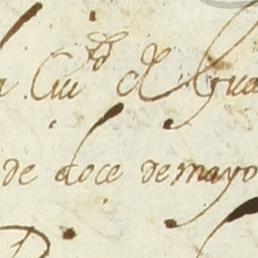 Ciud de Gua
de doce de mayo